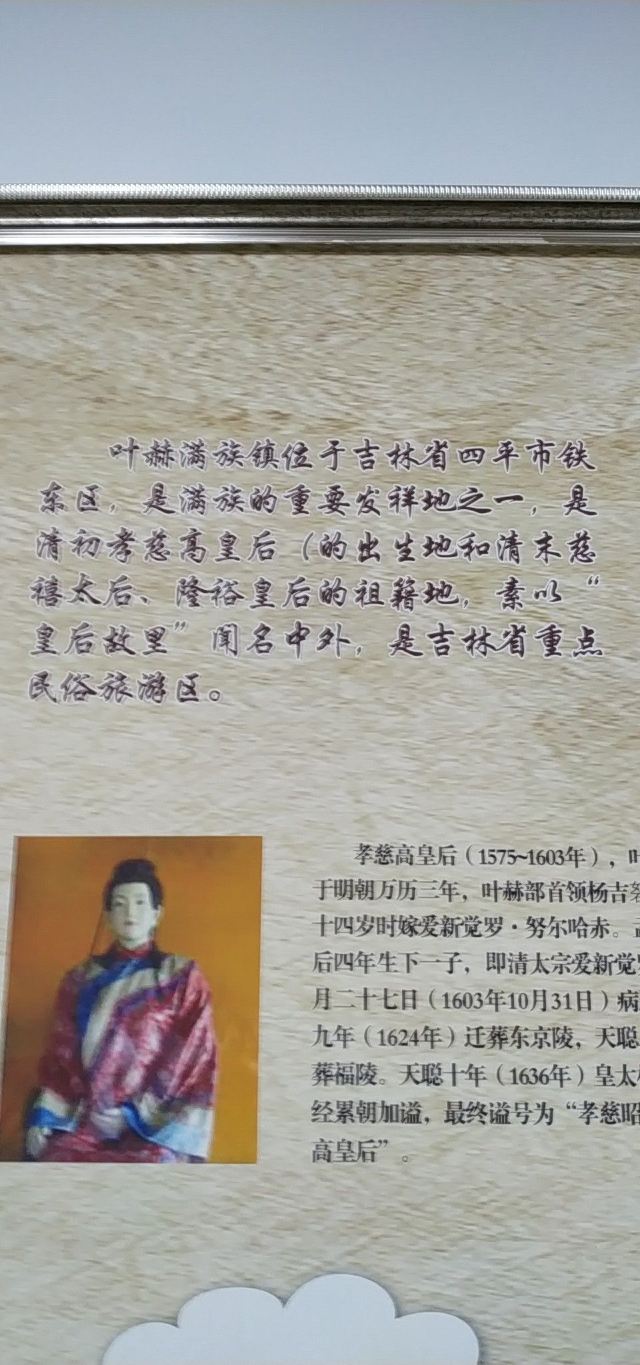 叶赫满族镇位于吉林省四平市铁
东区，是满族的重要发祥地之一，是
清初孝慈高皇后（的出生地和清末慈
禧太后、隆裕皇后的祖籍地，素以“
皇后故里”闻名中外，是吉林省重点
民俗旅游区。
孝慈高皇后（1575~1603年），叶
于明朝万历三年，叶赫部首领杨吉
十四岁时嫁爱新觉罗·努尔哈赤。
后四年生下一子，即清太宗爱新觉罗
月二十七日（1603年10月31日）病
九年（1624年）迁葬东京陵，天聪
葬福陵。天聪十年（1636年）皇太
经累朝加谥，最终谥号为“孝慈昭
高皇后”。